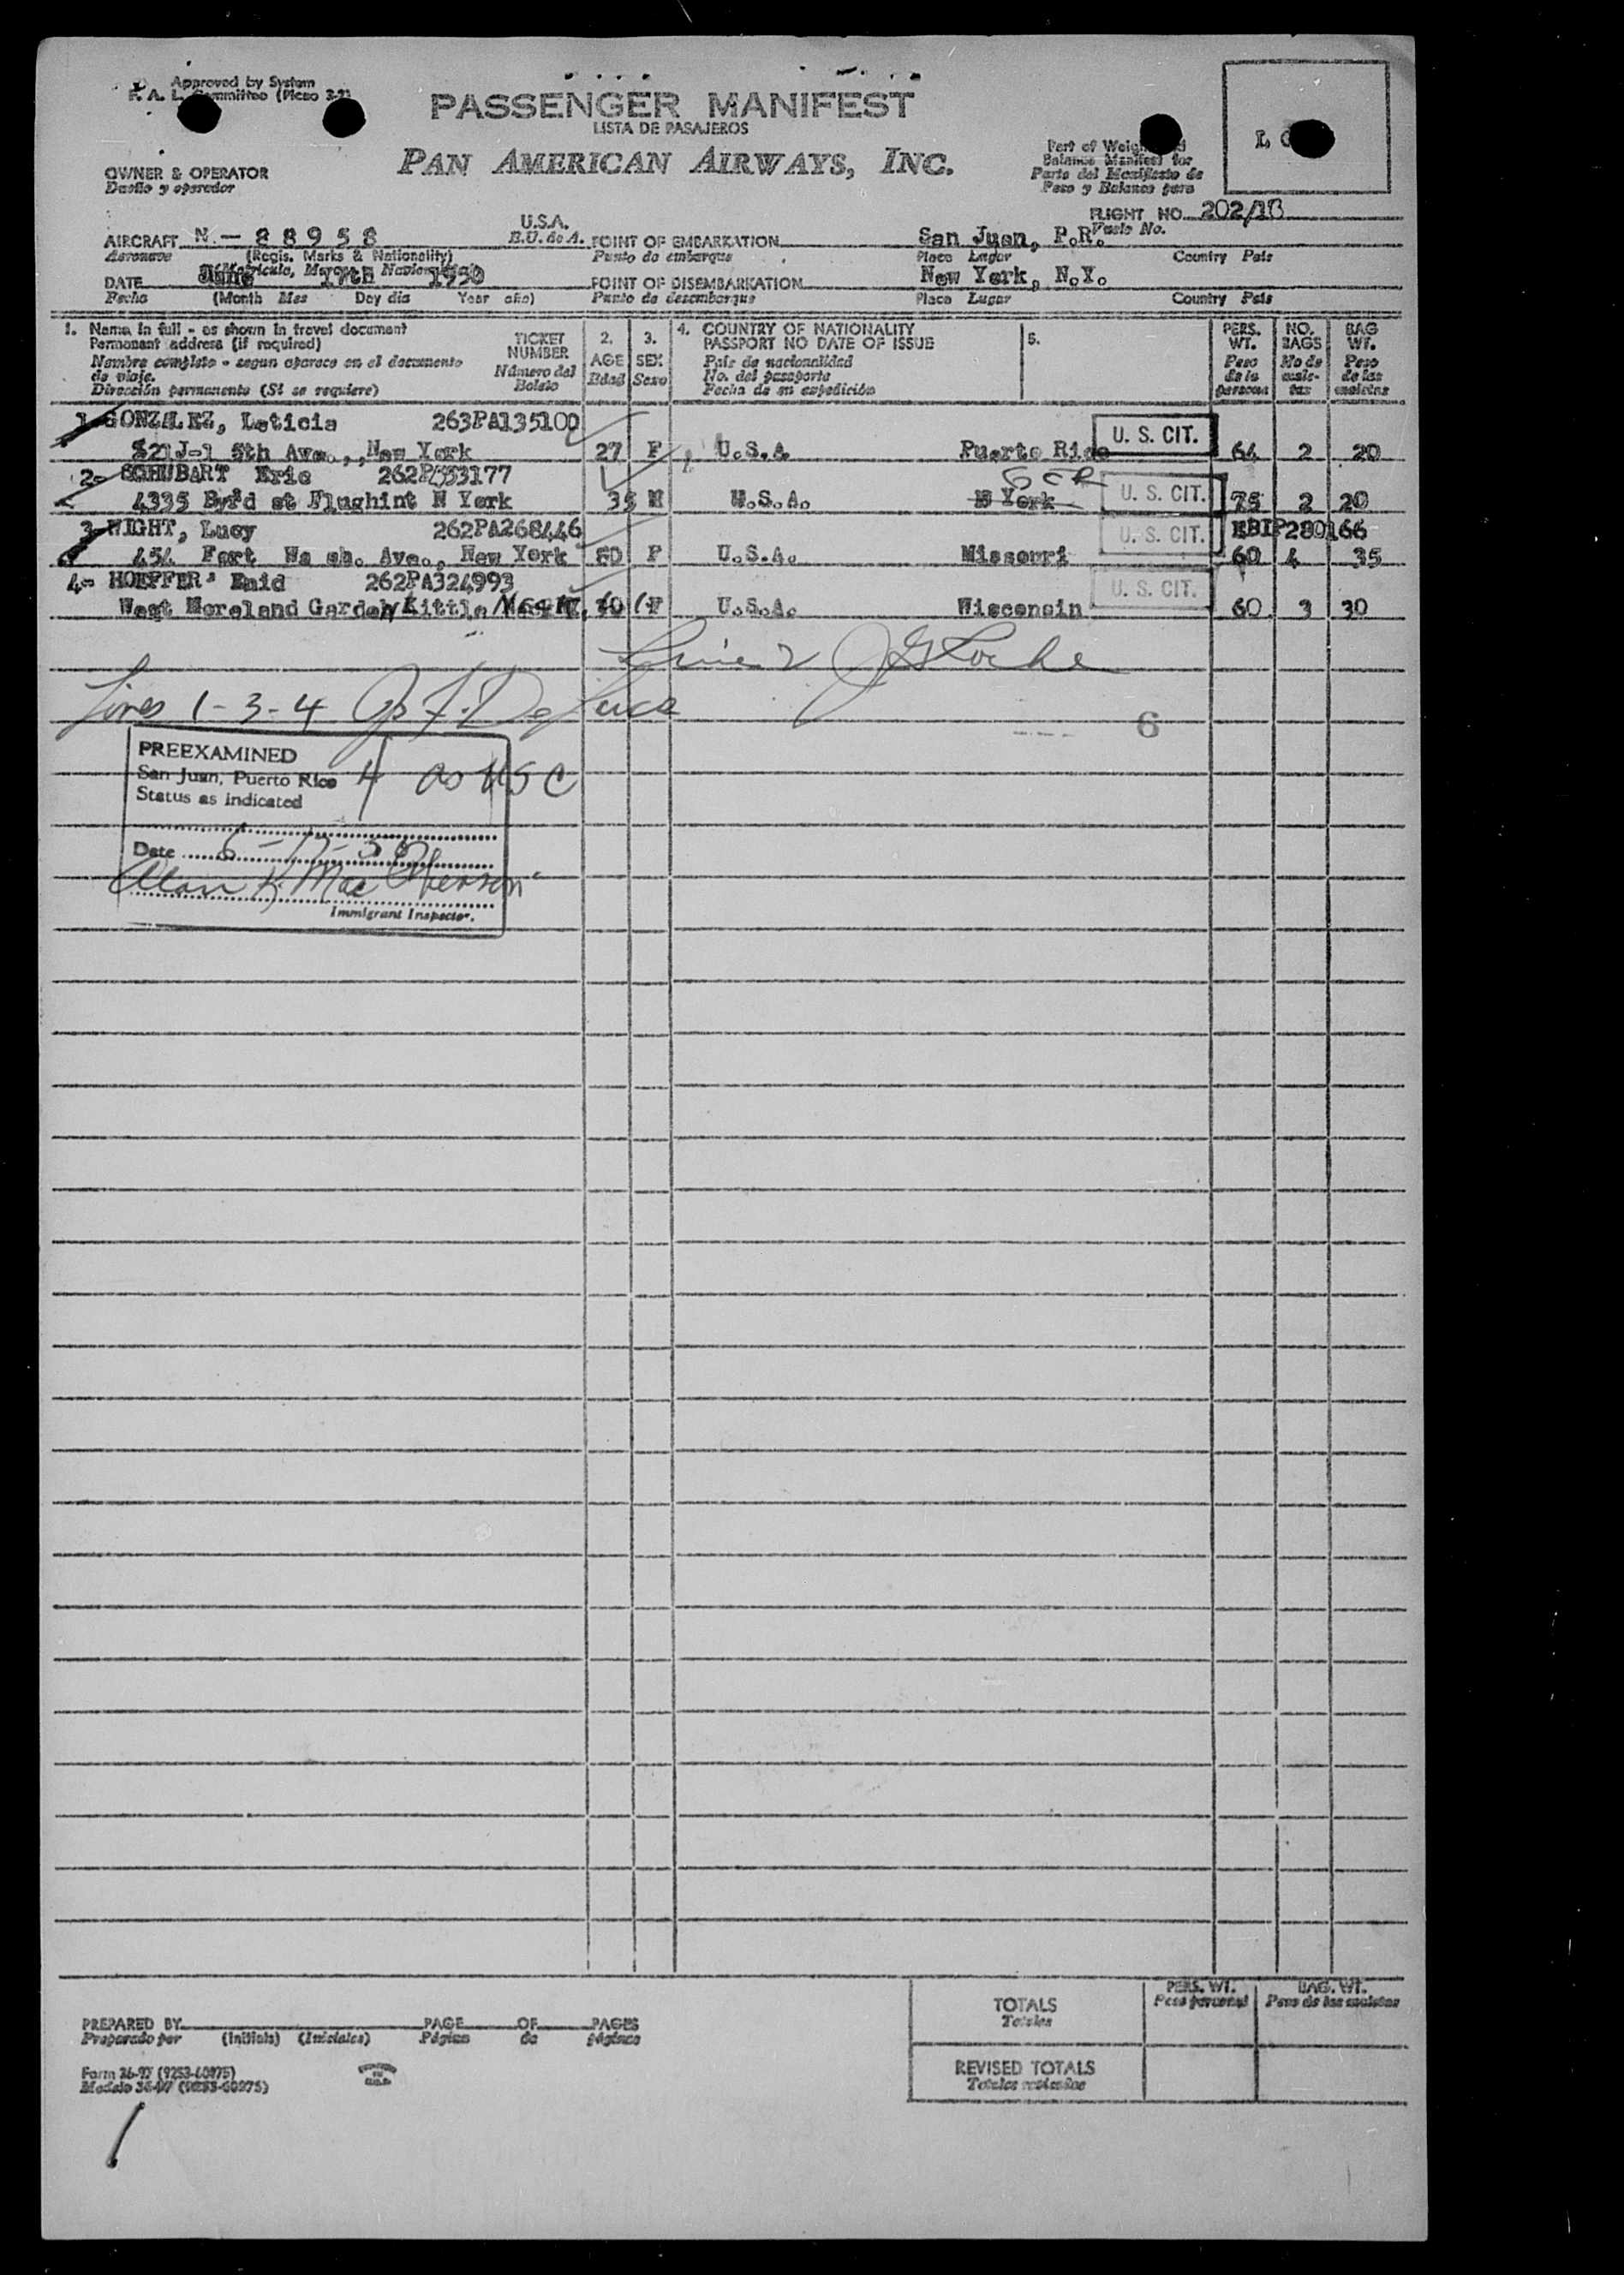 Approved by System
F. A. L. Committee (Dicao 3-2)
PASSENGER MANIFEST
LISTA DE PASAJEROS
PAN AMERICAN AIRWAYS, INC.
OWNER & OPERATOR
Dueño y operador
Part of Weight
Balance Manifest for
Parte del Manifiesto de
Peso y Balance para
FLIGHT NO. 202/1B
Vuelo No.
AIRCRAFT N - 88958 U.S.A.
Aeronave (Regis. Marks & Nationality) E.U. de A.
POINT OF EMBARKATION San Juan, P.R.
Punto de embarque Place Lugar Country País
DATE June 17th 1950
Fecha (Month Mes Day día Year año)
POINT OF DISEMBARKATION New York, N.Y.
Punto de desembarque Place Lugar Country País
1. Name in full - as shown in travel document
Permanent address (if required)
Nombre completo - segun aparece en el documento
de viaje.
Dirección permanente (Si se requiere)
TICKET
NUMBER
Número del
Boleto
2.
AGE
Edad
3.
SEX
Sexo
4. COUNTRY OF NATIONALITY
PASSPORT NO DATE OF ISSUE
País de nacionalidad
No. del pasaporte
Fecha de su expedición
5.
PERS.
WT.
Peso
de la
persona
NO.
BAGS
No de
male-
tas
BAG
WT.
Peso
de las
maletas
1- GONZALEZ, Leticia 263PA135100
521J-1 5th Ave.,,New York 27 F U.S.A. Puerto Rico U. S. CIT. 64 2 20
2- SCHUBART Eric 262P 53177 GER
4335 Byrd st Flughint N York 35 M U.S.A. N York U. S. CIT. 75 2 20
3- WIGHT, Lucy 262PA268446 U. S. CIT. EBIP280166
454 Fort Wa sh. Ave., New York 60 F U.S.A. Missouri 60 4 35
4- HOEFFER Enid 262PA324993 U. S. CIT.
West Moreland Garden Kittle 70 F U.S.A. Wisconsin 60 3 30
Line 2 J G Locke
Lines 1-3-4
6
PREEXAMINED
San Juan, Puerto Rico 4 as USC
Status as indicated
Date 6-17-50
Alan K. MacPherson
Immigrant Inspector.
TOTALS
Totales
PERS. WT.
Peso personal
BAG. WT.
Peso de las maletas
REVISED TOTALS
Totales revisados
PREPARED BY PAGE OF PAGES
Preparado por (Initials) (Iniciales) Página de páginas
Form 36-97 (9253-60975)
Modelo 36-97 (9253-60975)